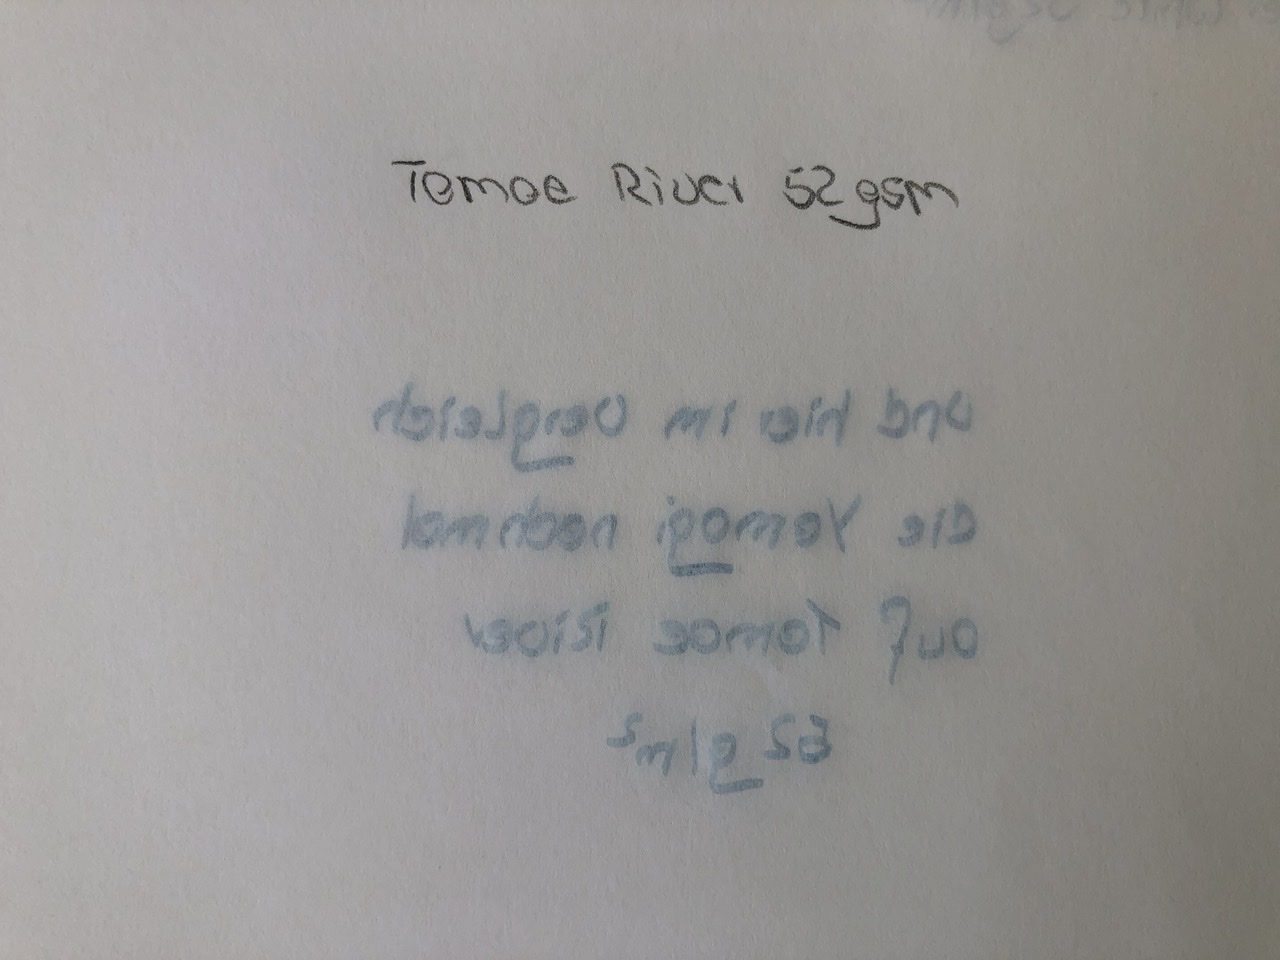 Tomoe River 52gsm
und hier im Vergleich
die Yamogi nochmal
auf Tomoe River
52 g/m²